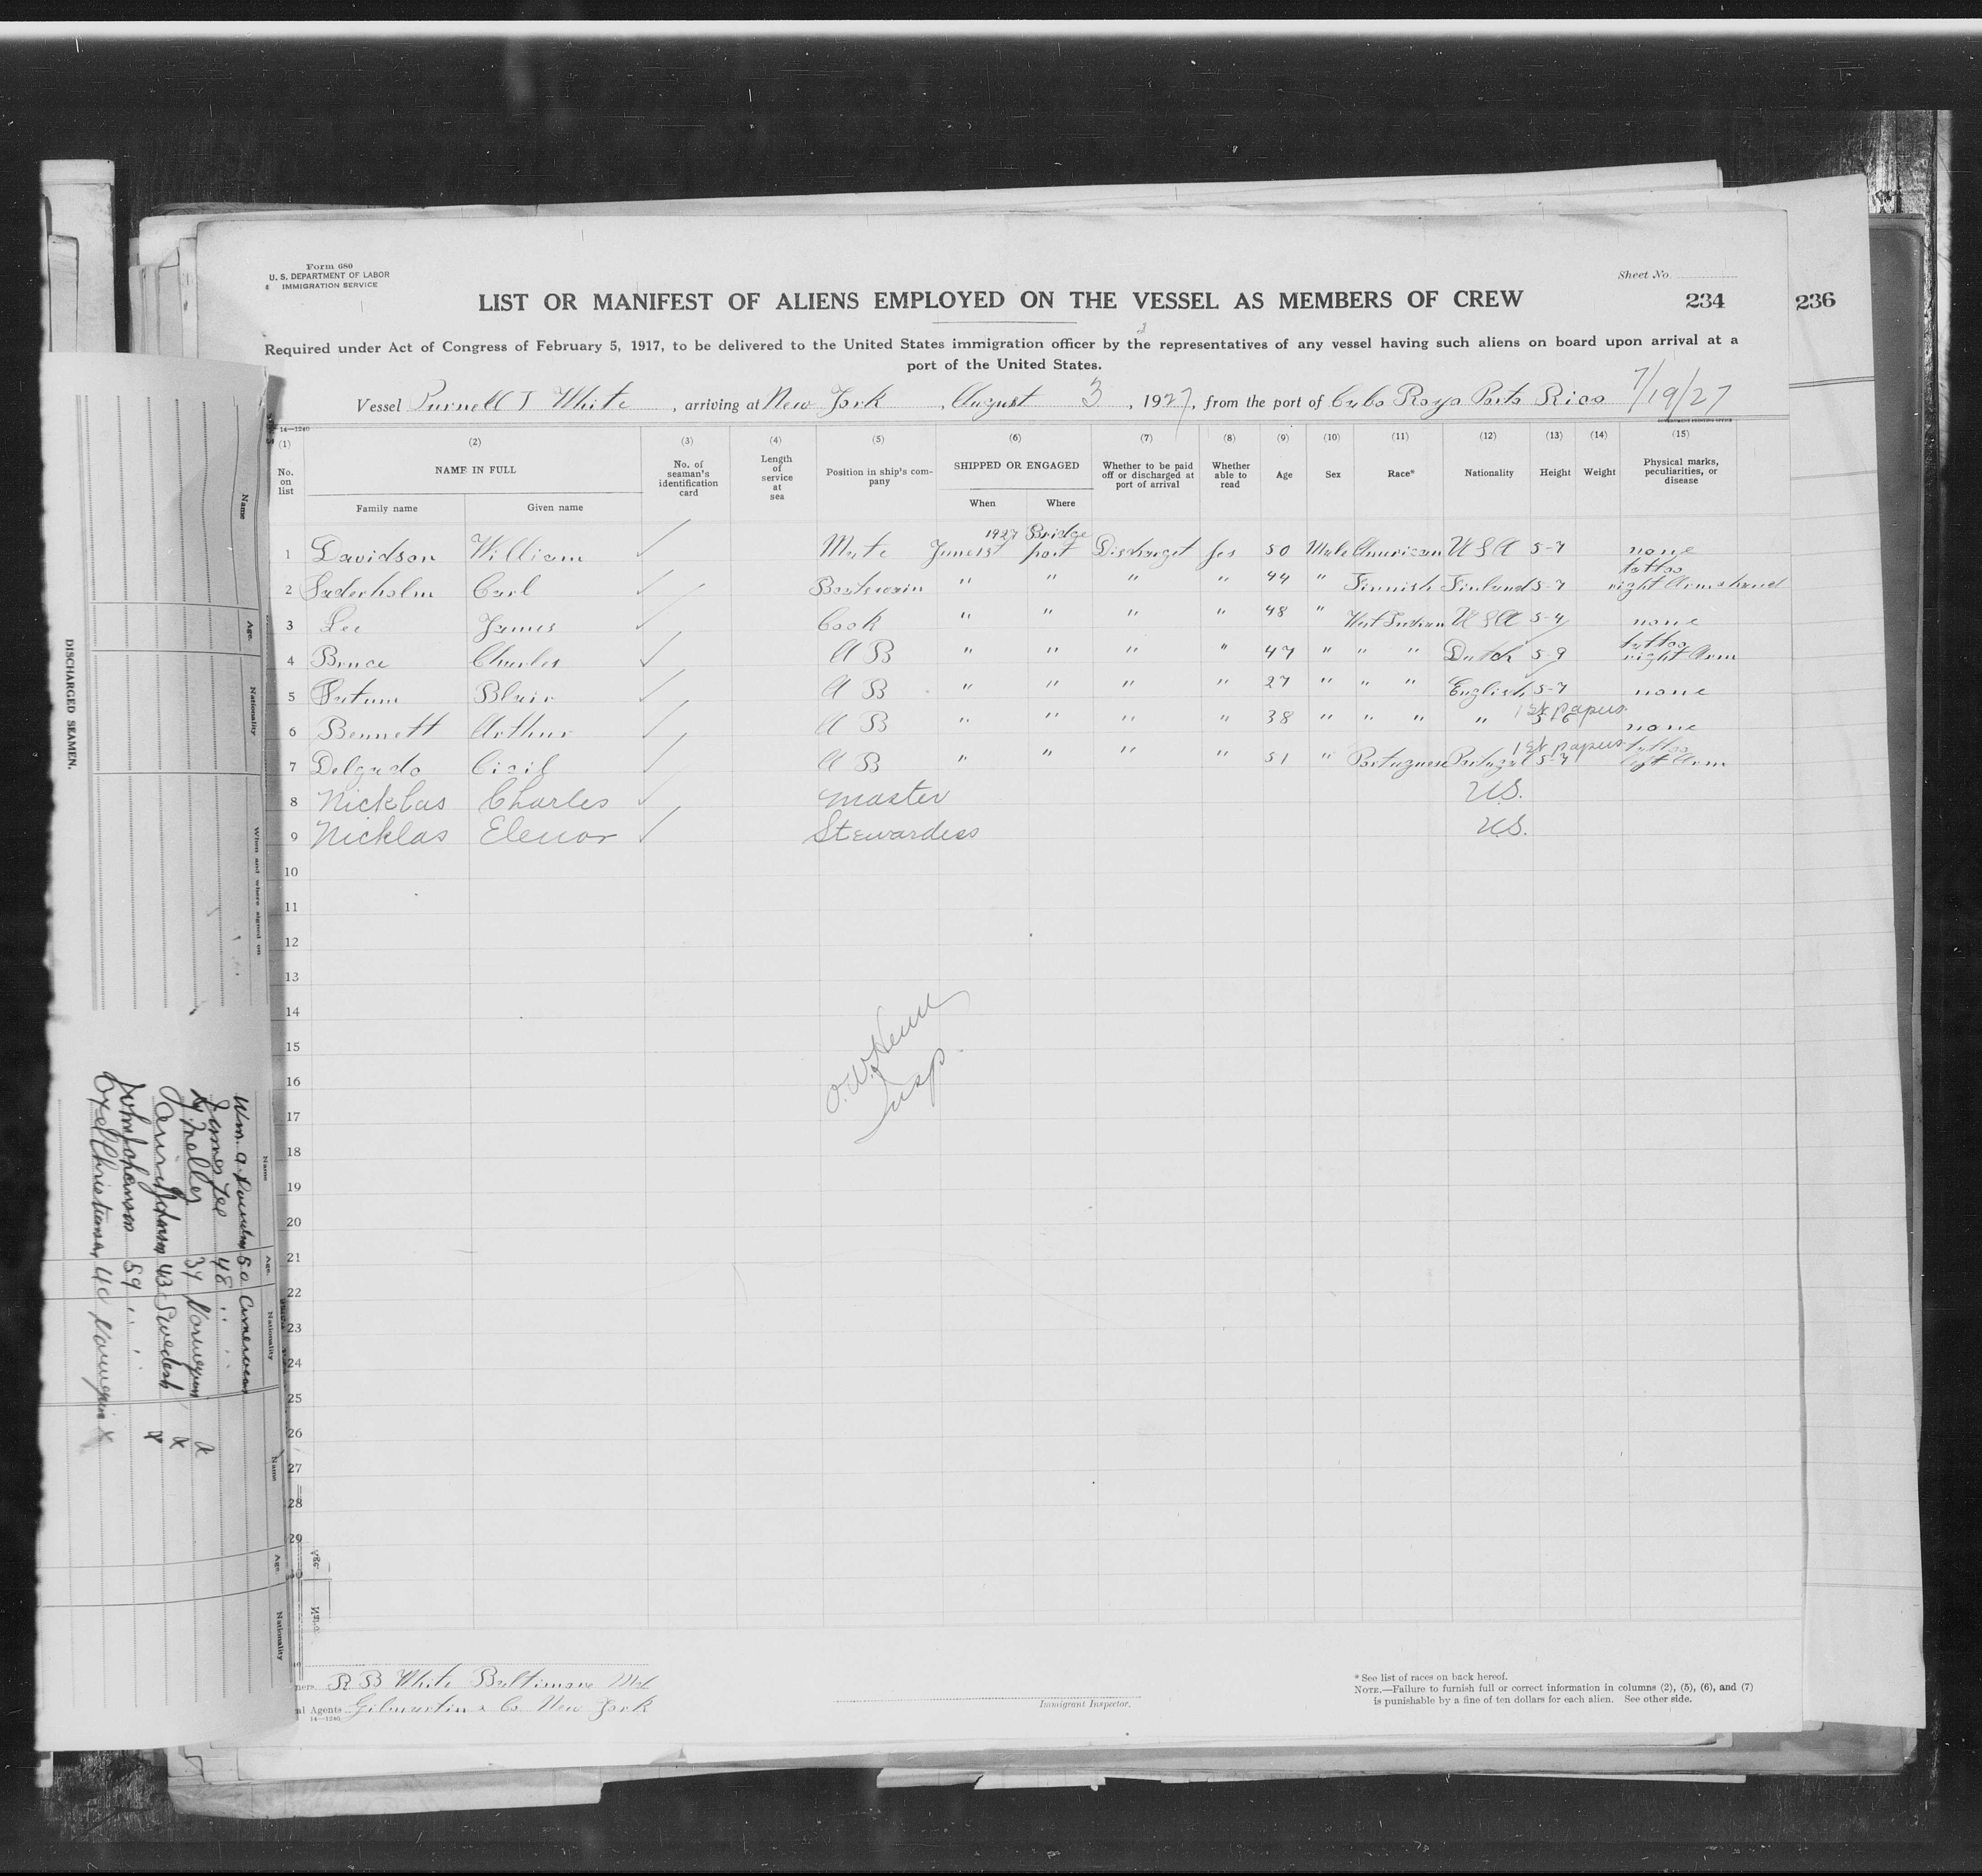 Form 680
U. S. DEPARTMENT OF LABOR
IMMIGRATION SERVICE
Sheet No.
LIST OR MANIFEST OF ALIENS EMPLOYED ON THE VESSEL AS MEMBERS OF CREW
234
236
Required under Act of Congress of February 5, 1917, to be delivered to the United States immigration officer by the representatives of any vessel having such aliens on board upon arrival at a
port of the United States.
Vessel Purnell T White, arriving at New York, August 3, 1927, from the port of Cabo Rojo Porto Rico 7/19/27
14—1240
GOVERNMENT PRINTING OFFICE
(1) (2) (3) (4) (5) (6) (7) (8) (9) (10) (11) (12) (13) (14) (15)
No. on list NAME IN FULL No. of seaman's identification card Length of service at sea Position in ship's company SHIPPED OR ENGAGED Whether to be paid off or discharged at port of arrival Whether able to read Age Sex Race* Nationality Height Weight Physical marks, peculiarities, or disease
Family name Given name When Where
1 Davidson William ✓ Mate 1927 June 1st Bridgeport Discharget Yes 50 Male American USA 5-7 none
2 Suderholm Carl ✓ Boatswain " " " " 44 " Finnish Finland 5-7 tattoo right Arm & hand
3 Lee James ✓ Cook " " " " 48 " West Indian USA 5-4 none
4 Bruce Charles ✓ A B " " " " 47 " " " Dutch 5-9 tattoo right Arm
5 Blair ✓ A B " " " " 27 " " " English 5-7 none
6 Bennett Arthur ✓ A B " " " " 38 " " " " 1st papers 5-6 none
7 Delgado Cicil ✓ A B " " " " 51 " Portuguese Portugal 1st papers 5-7 tattoo left Arm
8 Nicklas Charles ✓ master U.S.
9 Nicklas Elenor ✓ Stewardess U.S.
10
11
12
13
14
15
16
17
18
19
20
21
22
23
24
25
26
27
28
29
O. W.
Insp
R B White Baltimore Md
al Agents Gilmartin & Co New York
14—1240
Immigrant Inspector.
* See list of races on back hereof.
NOTE.—Failure to furnish full or correct information in columns (2), (5), (6), and (7)
is punishable by a fine of ten dollars for each alien. See other side.
DISCHARGED SEAMEN.
Name Age. Nationality When and where signed on
Name Age. Nationality
Name Age. Nationality
Wm. a 50 American
James Lee 48 " "
34 Norwegian x
43 Swedish x
John Johanson 59 " " x
Axel Christiansen 40 Norwegian x